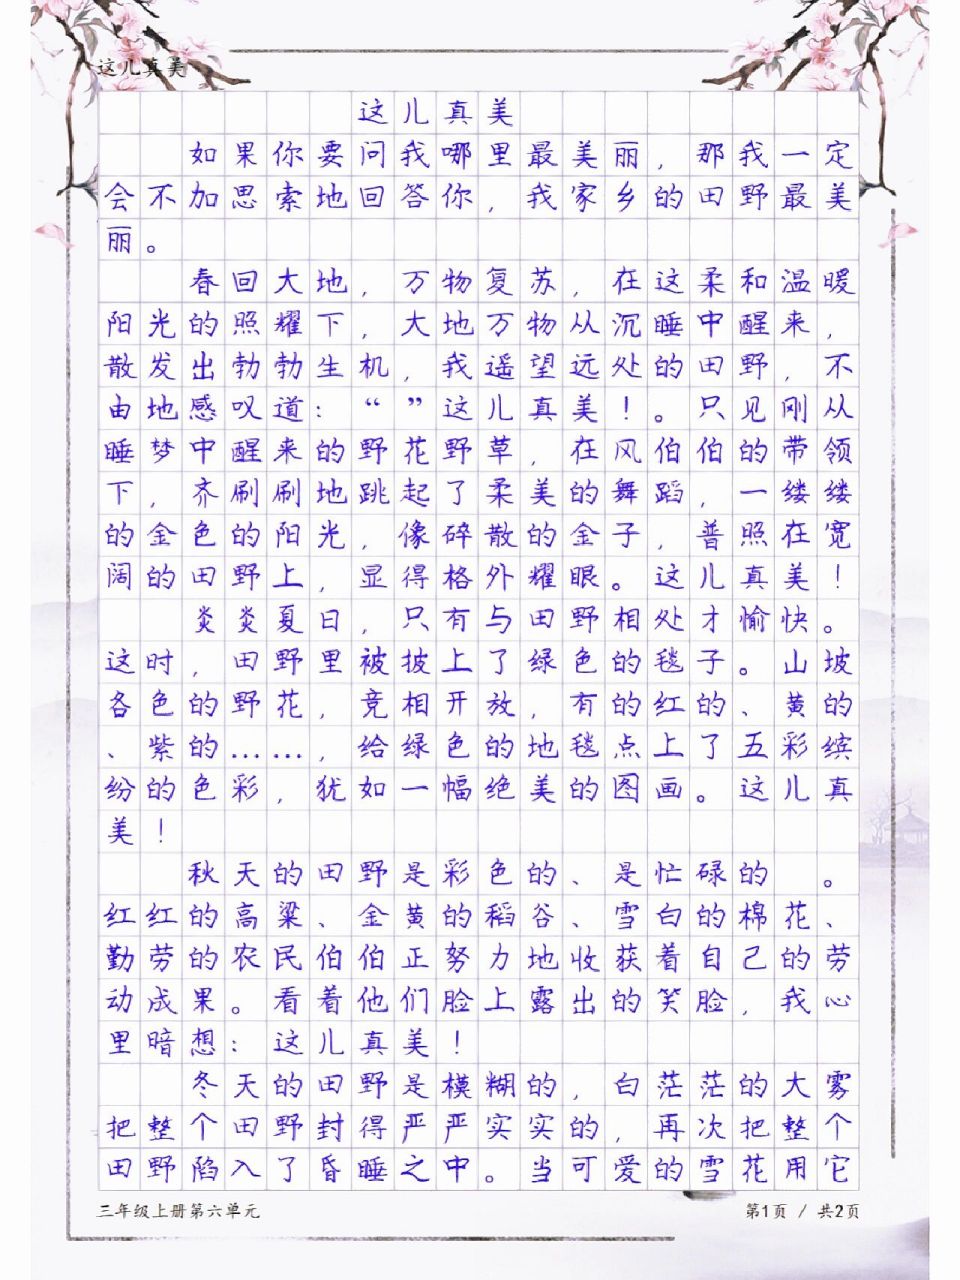 这儿真美
这儿真美
如果你要问我哪里最美丽，那我一定
会不加思索地回答你，我家乡的田野最美
丽。
春回大地，万物复苏，在这柔和温暖
阳光的照耀下，大地万物从沉睡中醒来，
散发出勃勃生机，我遥望远处的田野，不
由地感叹道：“”这儿真美！。只见刚从
睡梦中醒来的野花野草，在风伯伯的带领
下，齐刷刷地跳起了柔美的舞蹈，一缕缕
的金色的阳光，像碎散的金子，普照在宽
阔的田野上，显得格外耀眼。这儿真美！
炎炎夏日，只有与田野相处才愉快。
这时，田野里被披上了绿色的毯子。山坡
各色的野花，竞相开放，有的红的、黄的
、紫的……，给绿色的地毯点上了五彩缤
纷的色彩，犹如一幅绝美的图画。这儿真
美！
秋天的田野是彩色的、是忙碌的 。
红红的高粱、金黄的稻谷、雪白的棉花、
勤劳的农民伯伯正努力地收获着自己的劳
动成果。看着他们脸上露出的笑脸，我心
里暗想：这儿真美！
冬天的田野是模糊的，白茫茫的大雾
把整个田野封得严严实实的，再次把整个
田野陷入了昏睡之中。当可爱的雪花用它
三年级上册第六单元 第1页 / 共2页